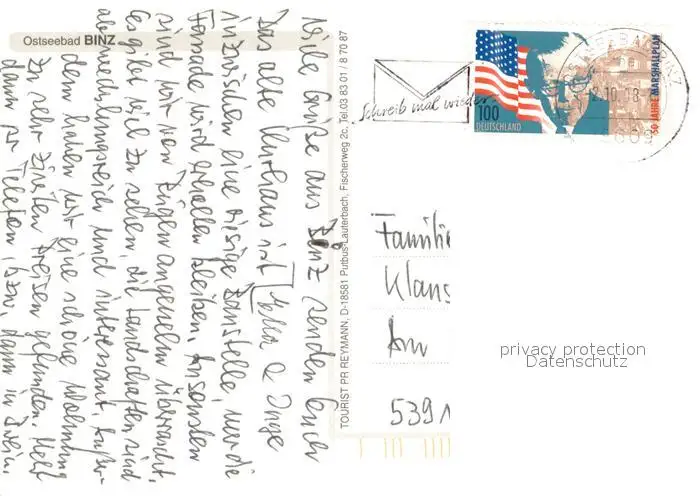 Ostseebad BINZ
Viele Grüße aus Binz senden Euch
Ebba & Inge
Das alte Kurhaus ist
inzwischen eine riesige Baustelle, nur die
Fassade wird erhalten bleiben. Ansonsten
sind wir von Rügen angenehm überrascht.
Es gibt viel zu sehen, die Landschaften sind
abwechslungsreich und interessant. Außer-
dem haben wir eine schöne Wohnung
zu sehr zivilen Preisen gefunden. Mehr
dann per Telefon, bzw. dann in
TOURIST PR REYMANN, D-18581 Putbus-Lauterbach, Fischerweg 2c, Tel.03 83 01 / 8 70 87
Schreib mal wieder
100
DEUTSCHLAND
50 JAHRE MARSHALLPLAN
Familie
Klaus
Am
539
privacy protection
Datenschutz